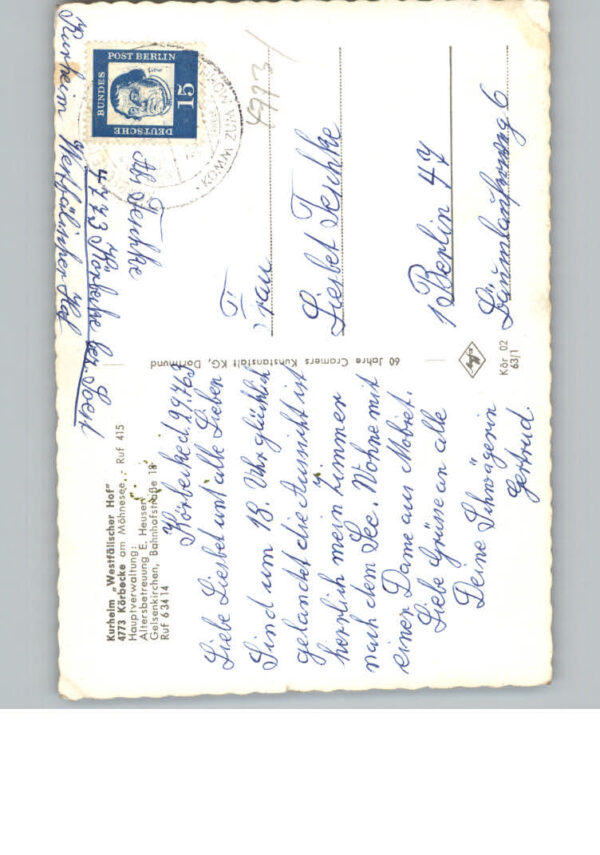 Kurheim „Westfälischer Hof"
4773 Körbecke am Möhnesee, Ruf 415
Hauptverwaltung:
Altersbetreuung E. Heusen
Gelsenkirchen, Bahnhofstraße 18
Ruf 63414
Körbecke d. 29.7.63
Liebe Liesbet und alle Lieben
Sind um 18. Uhr glücklich
gelandet die Aussicht ist
herrlich mein Zimmer
nach dem See. Wohne mit
einer Dame aus
Liebe Grüße an alle
Deine Schwägerin
Gertrud.
60 Jahre Cramers Kunstanstalt KG, Dortmund
Agfa
Kör 02
63/1
DEUTSCHE
BUNDES
POST BERLIN
15
KOMM ZUM
4773
Abs. Teschke
4773 Körbecke bez. Soest
Kurheim Westfälischer Hof
Frau
Liesbet Teschke
1 Berlin 47
6